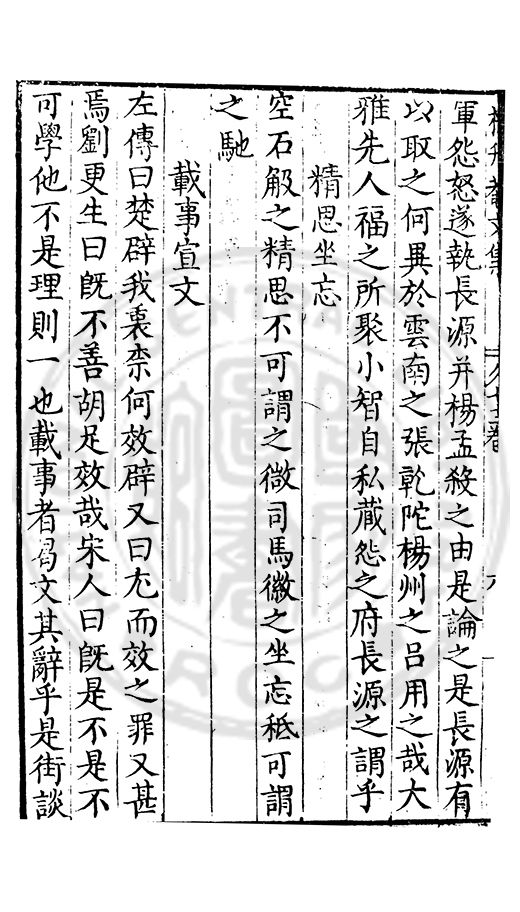 軍怨怒遂執長源并楊孟殺之由是論之是長源有
以取之何異於雲南之張乾陀楊州之吕用之哉大
雅先人福之所聚小智自私藏怨之府長源之謂乎
精思坐忘
空石觙之精思不可謂之微司馬徽之坐忘秪可謂
之馳
載事宣文
左傳曰楚辟我衷柰何效辟又曰尤而效之罪又甚
焉劉更生曰既不善胡足效哉宋人曰既是不是不
可學他不是理則一也載事者曷文其辭乎是街談